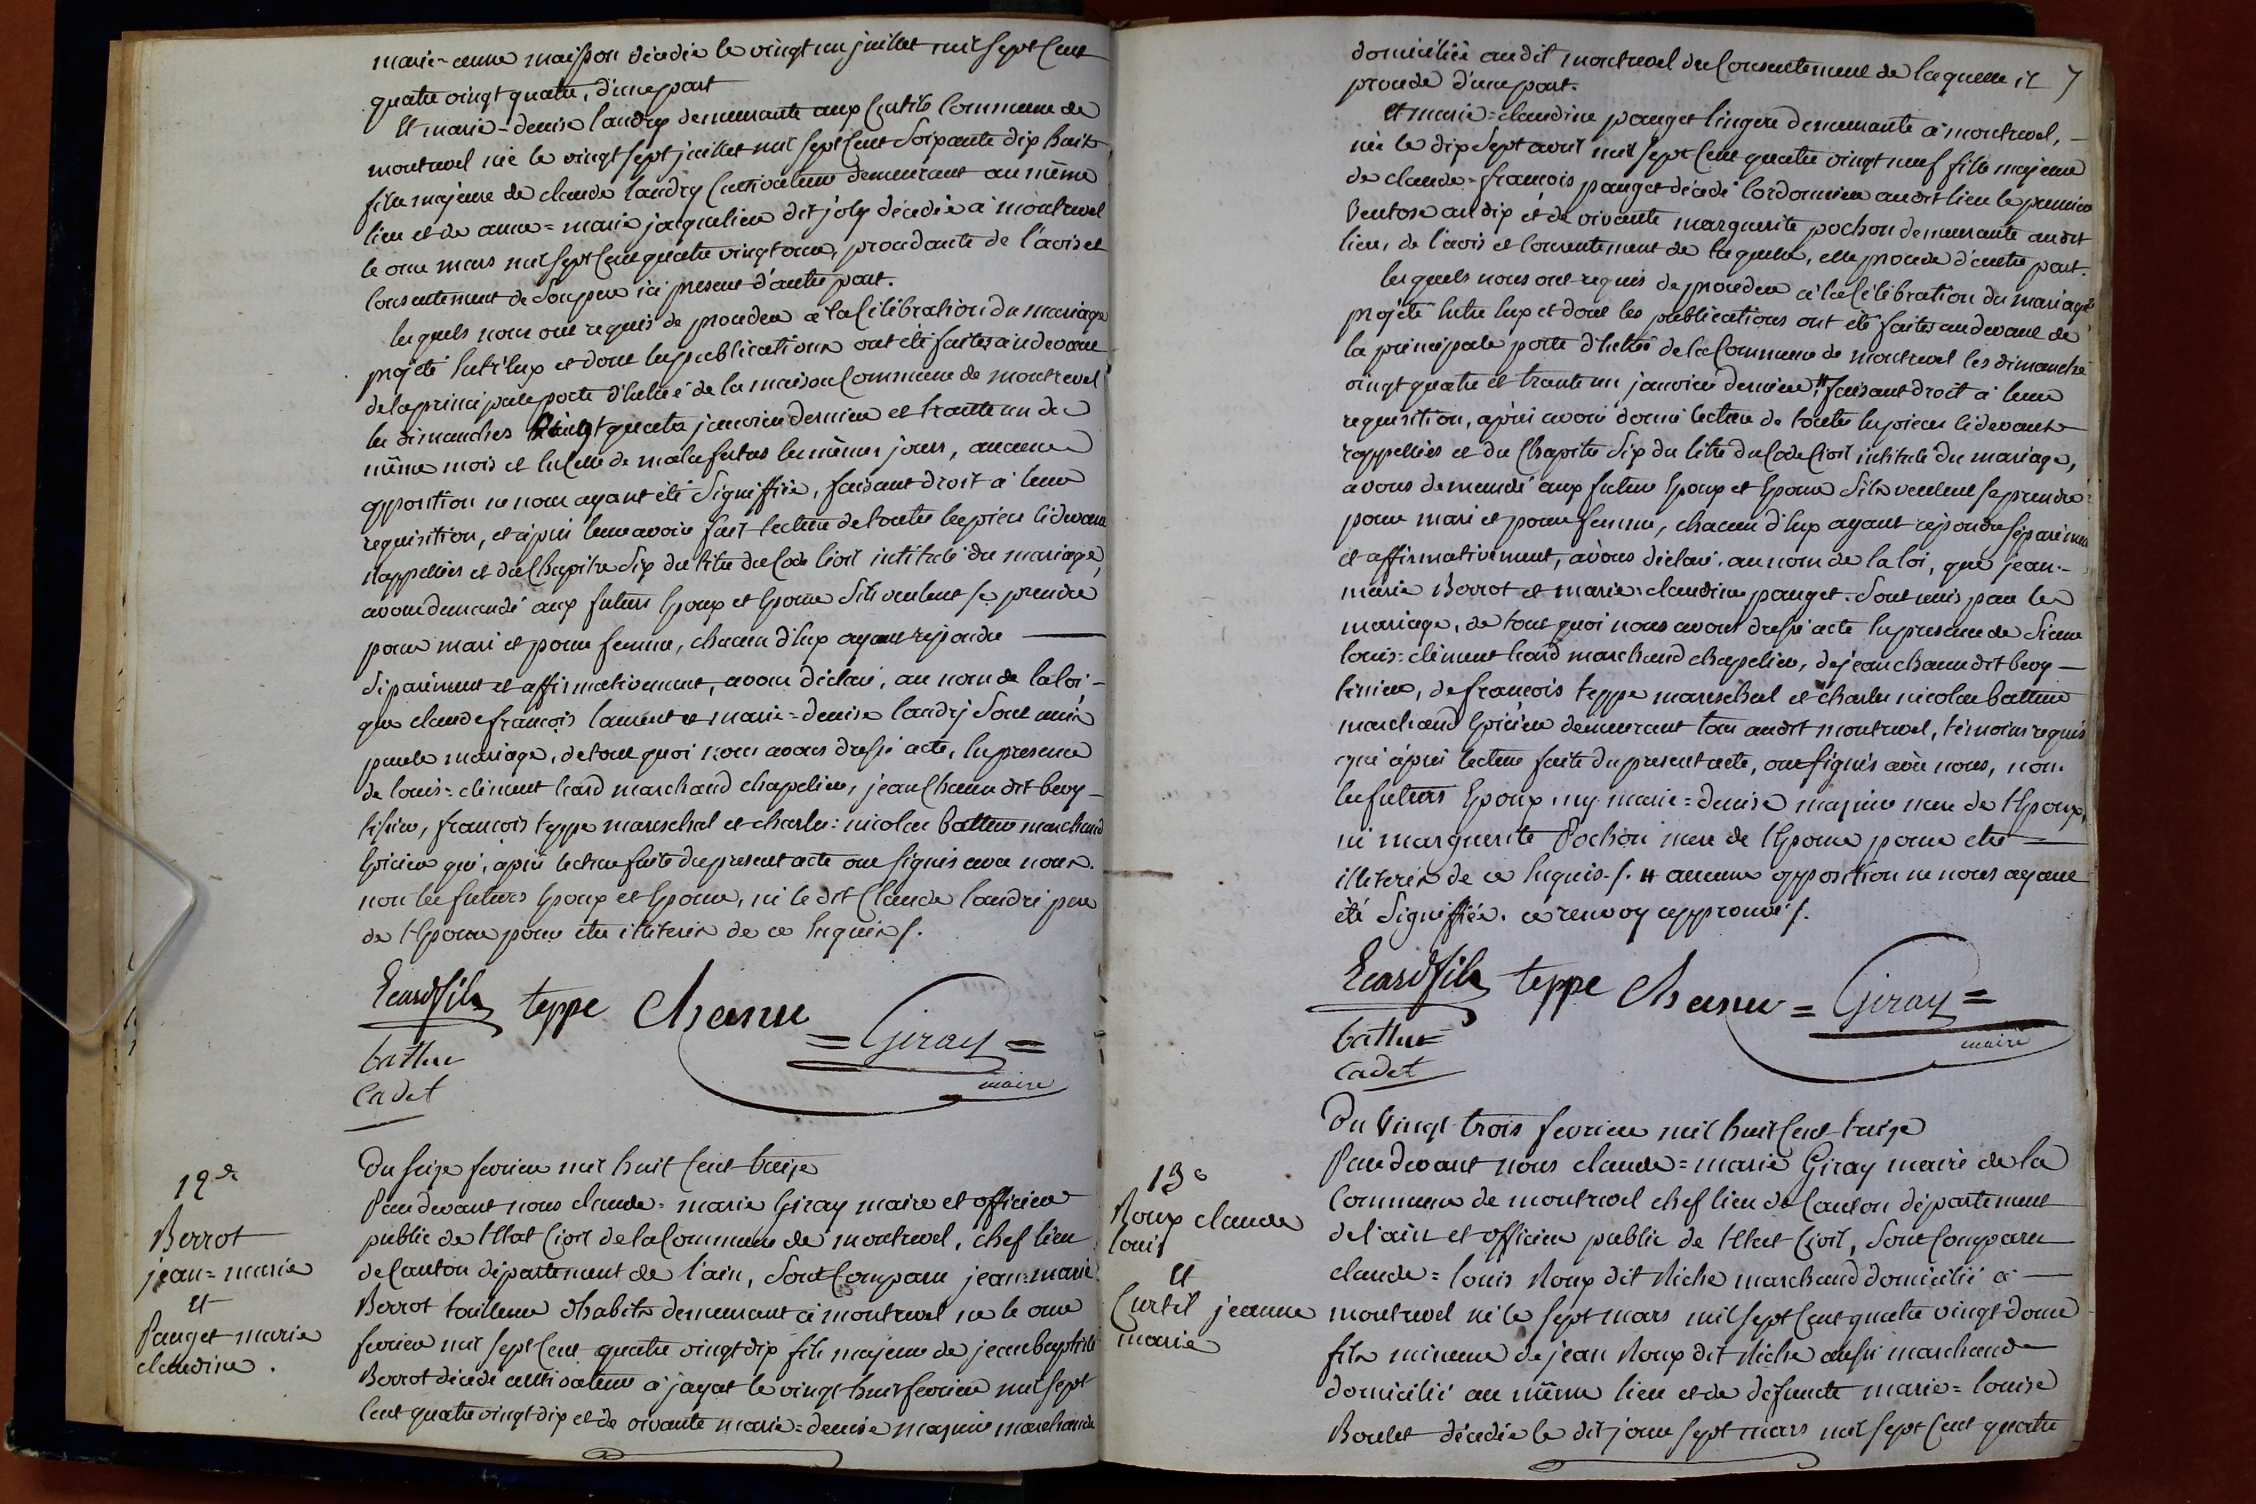 marie-anne maisson décédée le vingt un juillet mil sept Cent
quatre vingt quatre, d'une part
Et marie=denise landry demeurante aux Curtils Commune de
montrevel née le vingt sept juillet mil sept Cent Soixante dix huit
fille majeure de claude landry Cultivateur demeurant au même
lieu et de anne=marie jacquelin dit joly décédée à montrevel
le onze mars mil sept Cent quatre vingt onze, procedante de l'avis et
Consentement de Son pere ici present d'autre part.
lesquels nous ont requis de proceder à la Célébration du mariage
projeté Entr'Eux et dont les publications ont été faites au devant
de la principale porte d'Entrée de la maison Commune de montrevel
les dimanches vingt quatre janvier dernier et trente un du
même mois et Celle de malafretas les mêmes jours, aucune
opposition ne nous ayant été Signiffiée, faisant droit à leur
requisition, et après leur avoir fait lecture de toutes les pieces Cidevant
rappellées et du Chapitre Six du titre du Code Civil intitulé du mariage,
avons demandé aux futurs Epoux et Epouse S'ils veulent se prendre
pour mari et pour femme, chacun d'Eux ayant répondu
Séparément et affirmativement, avons déclaré, au nom de la loi
que claude françois laurent et marie=denise landry Sont unis
par le mariage, de tout quoi nous avons dressé acte, En presence
de louis=clément Ecard marchand chapelier, jean Chanu dit bevy
tisier, françois teppe mareschal et charles=nicolas battur marchand
Epicier qui, après lecture faite du present acte ont signés avec nous.
non les futurs Epoux et Epouse, ni le dit Claude landri pere
de l'Epouse pour être illiterés de ce Enquis /.
Ecard fils teppe Chanu
= Giray =
maire
battur
Cadet
12e
Berrot
jean=marie
Et
Panget marie
claudine.
Du Seize fevrier mil huit Cent treize
Pardevant nous claude=marie Giray maire et officier
public de l'Etat Civil de la Commune de montrevel, chef lieu
de Canton département de l'ain, Sont Comparu jean=marie
Berrot tailleur d'habits demeurant à montrevel né le onze
fevrier mil sept Cent quatre vingt dix fils majeur de jean baptiste
Berrot décédé cultivateur à jayat le vingt huit fevrier mil sept
Cent quatre vingt dix et de vivante marie=denise marchande
domiciliée audit montrevel du Consentement de laquelle il 7
procede d'une part.
Et marie=claudine panget lingere demeurante à montrevel,
née le dix Sept avril mil sept Cent quatre vingt neuf fille majeure
de claude=françois panget décédé Cordonnier audit lieu le premier
Ventose an dix et de vivante marguerite pochon demeurante audit
lieu, de l'avis et Consentement de laquelle, elle procede d'autre part.
lesquels nous ont requis de proceder à la Célébration du mariage
projeté Entre Eux et dont les publications ont été faites au devant de
la principale porte d'Entrée de la Commune de montrevel les dimanche
vingt quatre et trente un janvier dernier # faisant droit à leur
requisition, après avoir donné lecture de toutes les pieces Cidevant
rappellées et du Chapitre Six du titre du Code Civil intitulé du mariage,
avons demandé aux futurs Epoux et Epouse S'ils veulent se prendre
pour mari et pour femme, chacun d'Eux ayant répondu séparément
et affirmativement, avons déclaré, au nom de la loi, que jean=
marie Berrot et marie=claudine panget Sont unis par le
mariage, de tout quoi nous avons dressé acte En presence de Sieur
louis=clément Ecard marchand chapelier, de jean chanu dit bevy
tisier, de françois teppe mareschal et charles nicolas battur
marchand Epicier demeurant tous audit montrevel, témoins requis
qui après lecture faite du present acte, ont signés avec nous, non
les futurs Epoux, ny marie=denise mere de l'Epoux,
ni marguerite Pochon mere de l'Epouse pour être
illiterés de ce Enquis /. # aucune opposition ne nous ayant
été Signiffiée. ce renvoy approuvé /.
Ecard fils teppe Chanu = Giray =
maire
battur
Cadet
13e
Roux claude
louis
Et
Curtil jeanne
marie
Du Vingt trois fevrier mil huit Cent treize
Pardevant nous claude=marie Giray maire de la
Commune de montrevel chef lieu de Canton département
de l'ain et officier public de l'Etat Civil, Sont Comparu
claude=louis Roux dit Riche marchand domicilié à
montrevel né le sept mars mil sept Cent quatre vingt douze
fils mineur de jean Roux dit Riche aussi marchand
domicilié au même lieu et de défunte marie=louise
Boulet décédée le dit jour sept mars mil sept Cent quatre